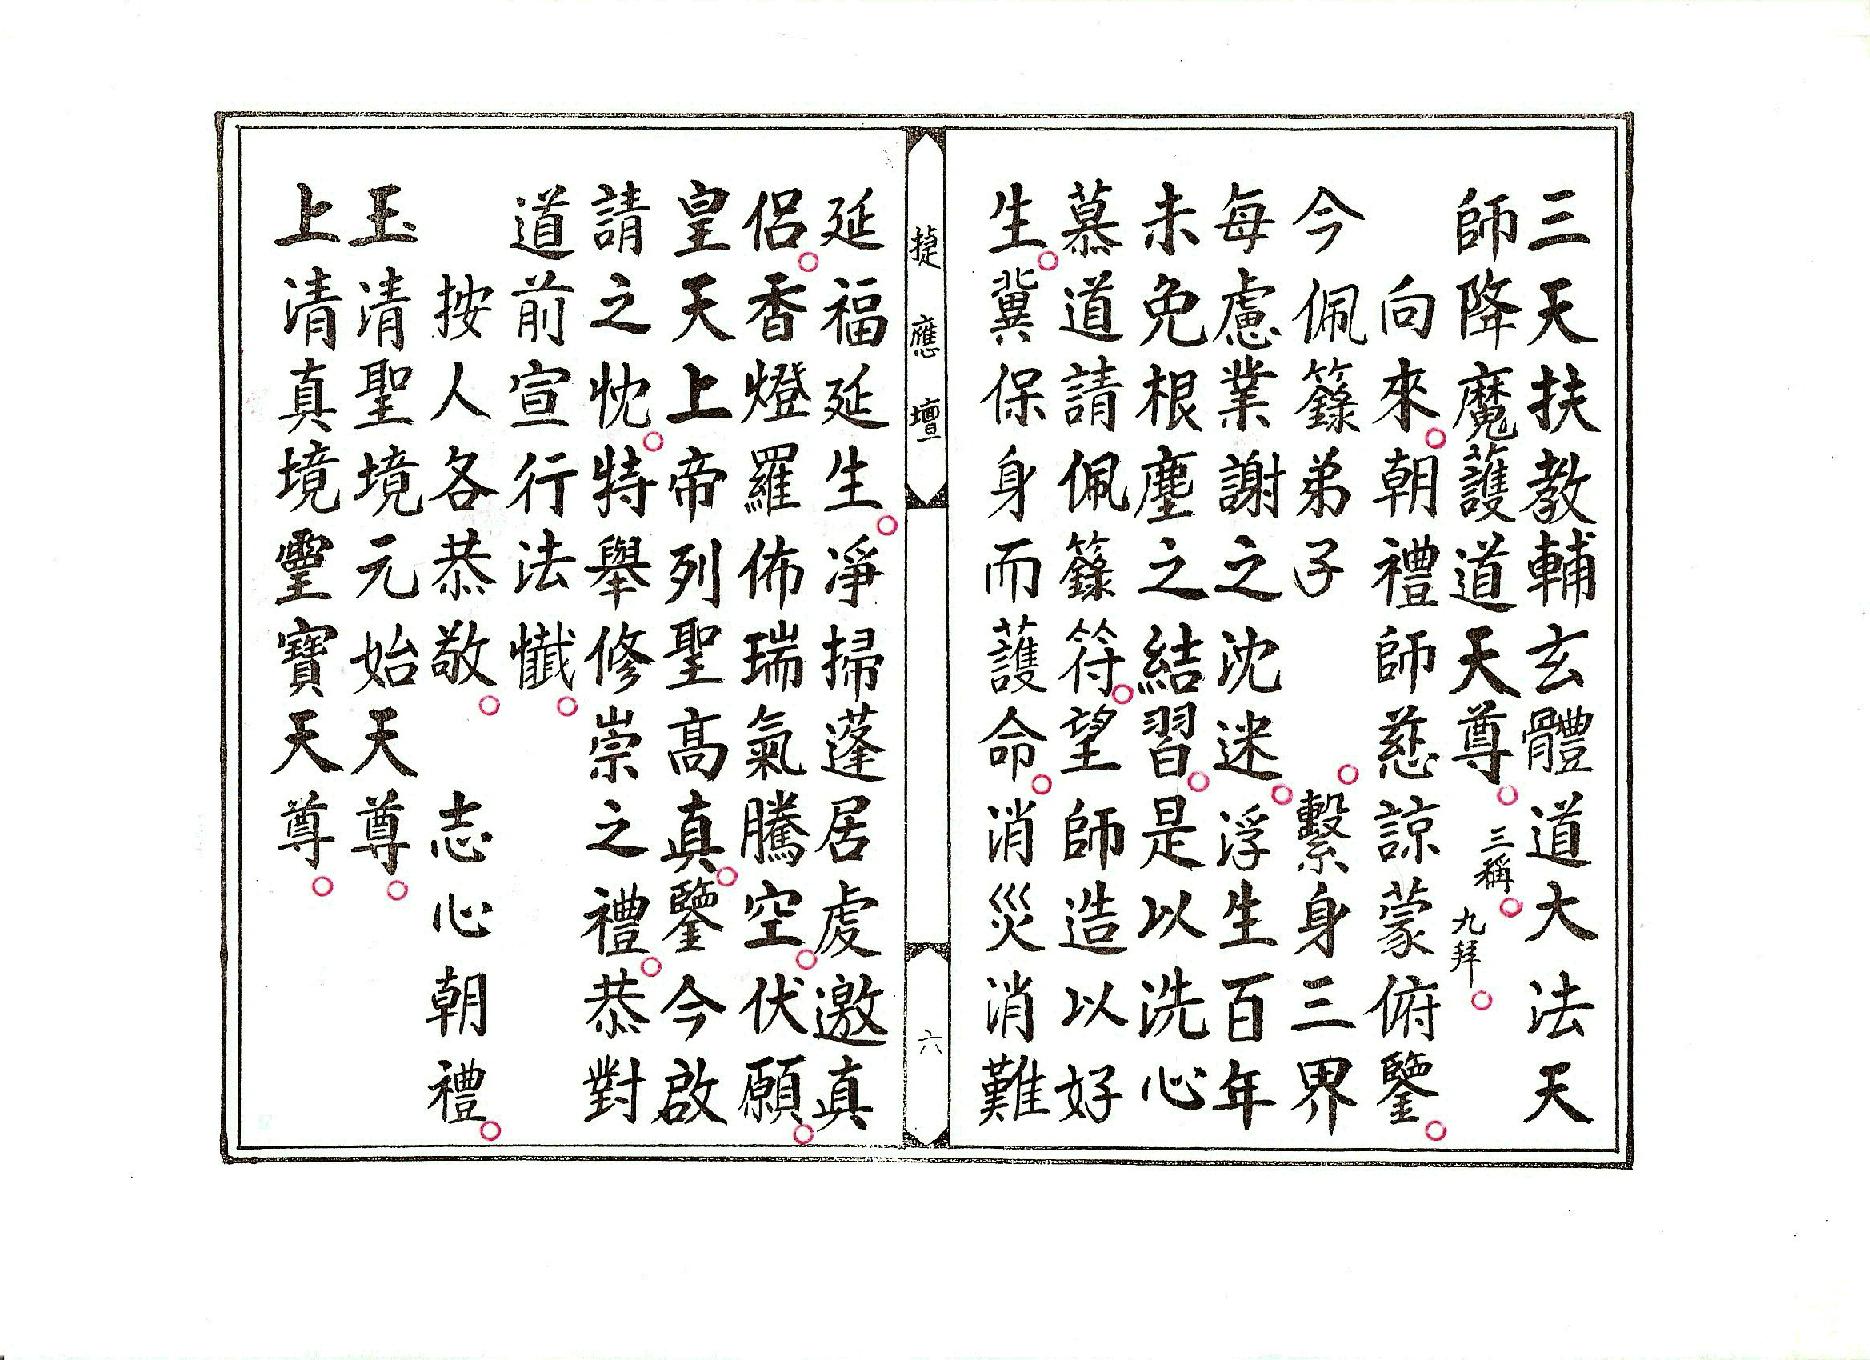 三天扶教輔玄體道大法天
師降魔護道天尊。三稱。九拜。
向來。朝禮師慈諒蒙俯鑒。
今佩籙弟子　。繫身三界
每慮業謝之沈迷。浮生百年
未免根塵之結習。是以洗心
慕道請佩籙符。望師造以好
生。冀保身而護命。消災消難
捷應壇
六
延福延生。凈掃蓬居處邀真
侶。香燈羅佈瑞氣騰空。伏願。
皇天上帝列聖高真。鑒今啟
請之忱。特舉修崇之禮。恭對
道前宣行法懺。
按人各恭敬。　志心朝禮。
玉清聖境元始天尊。
上清真境靈寶天尊。